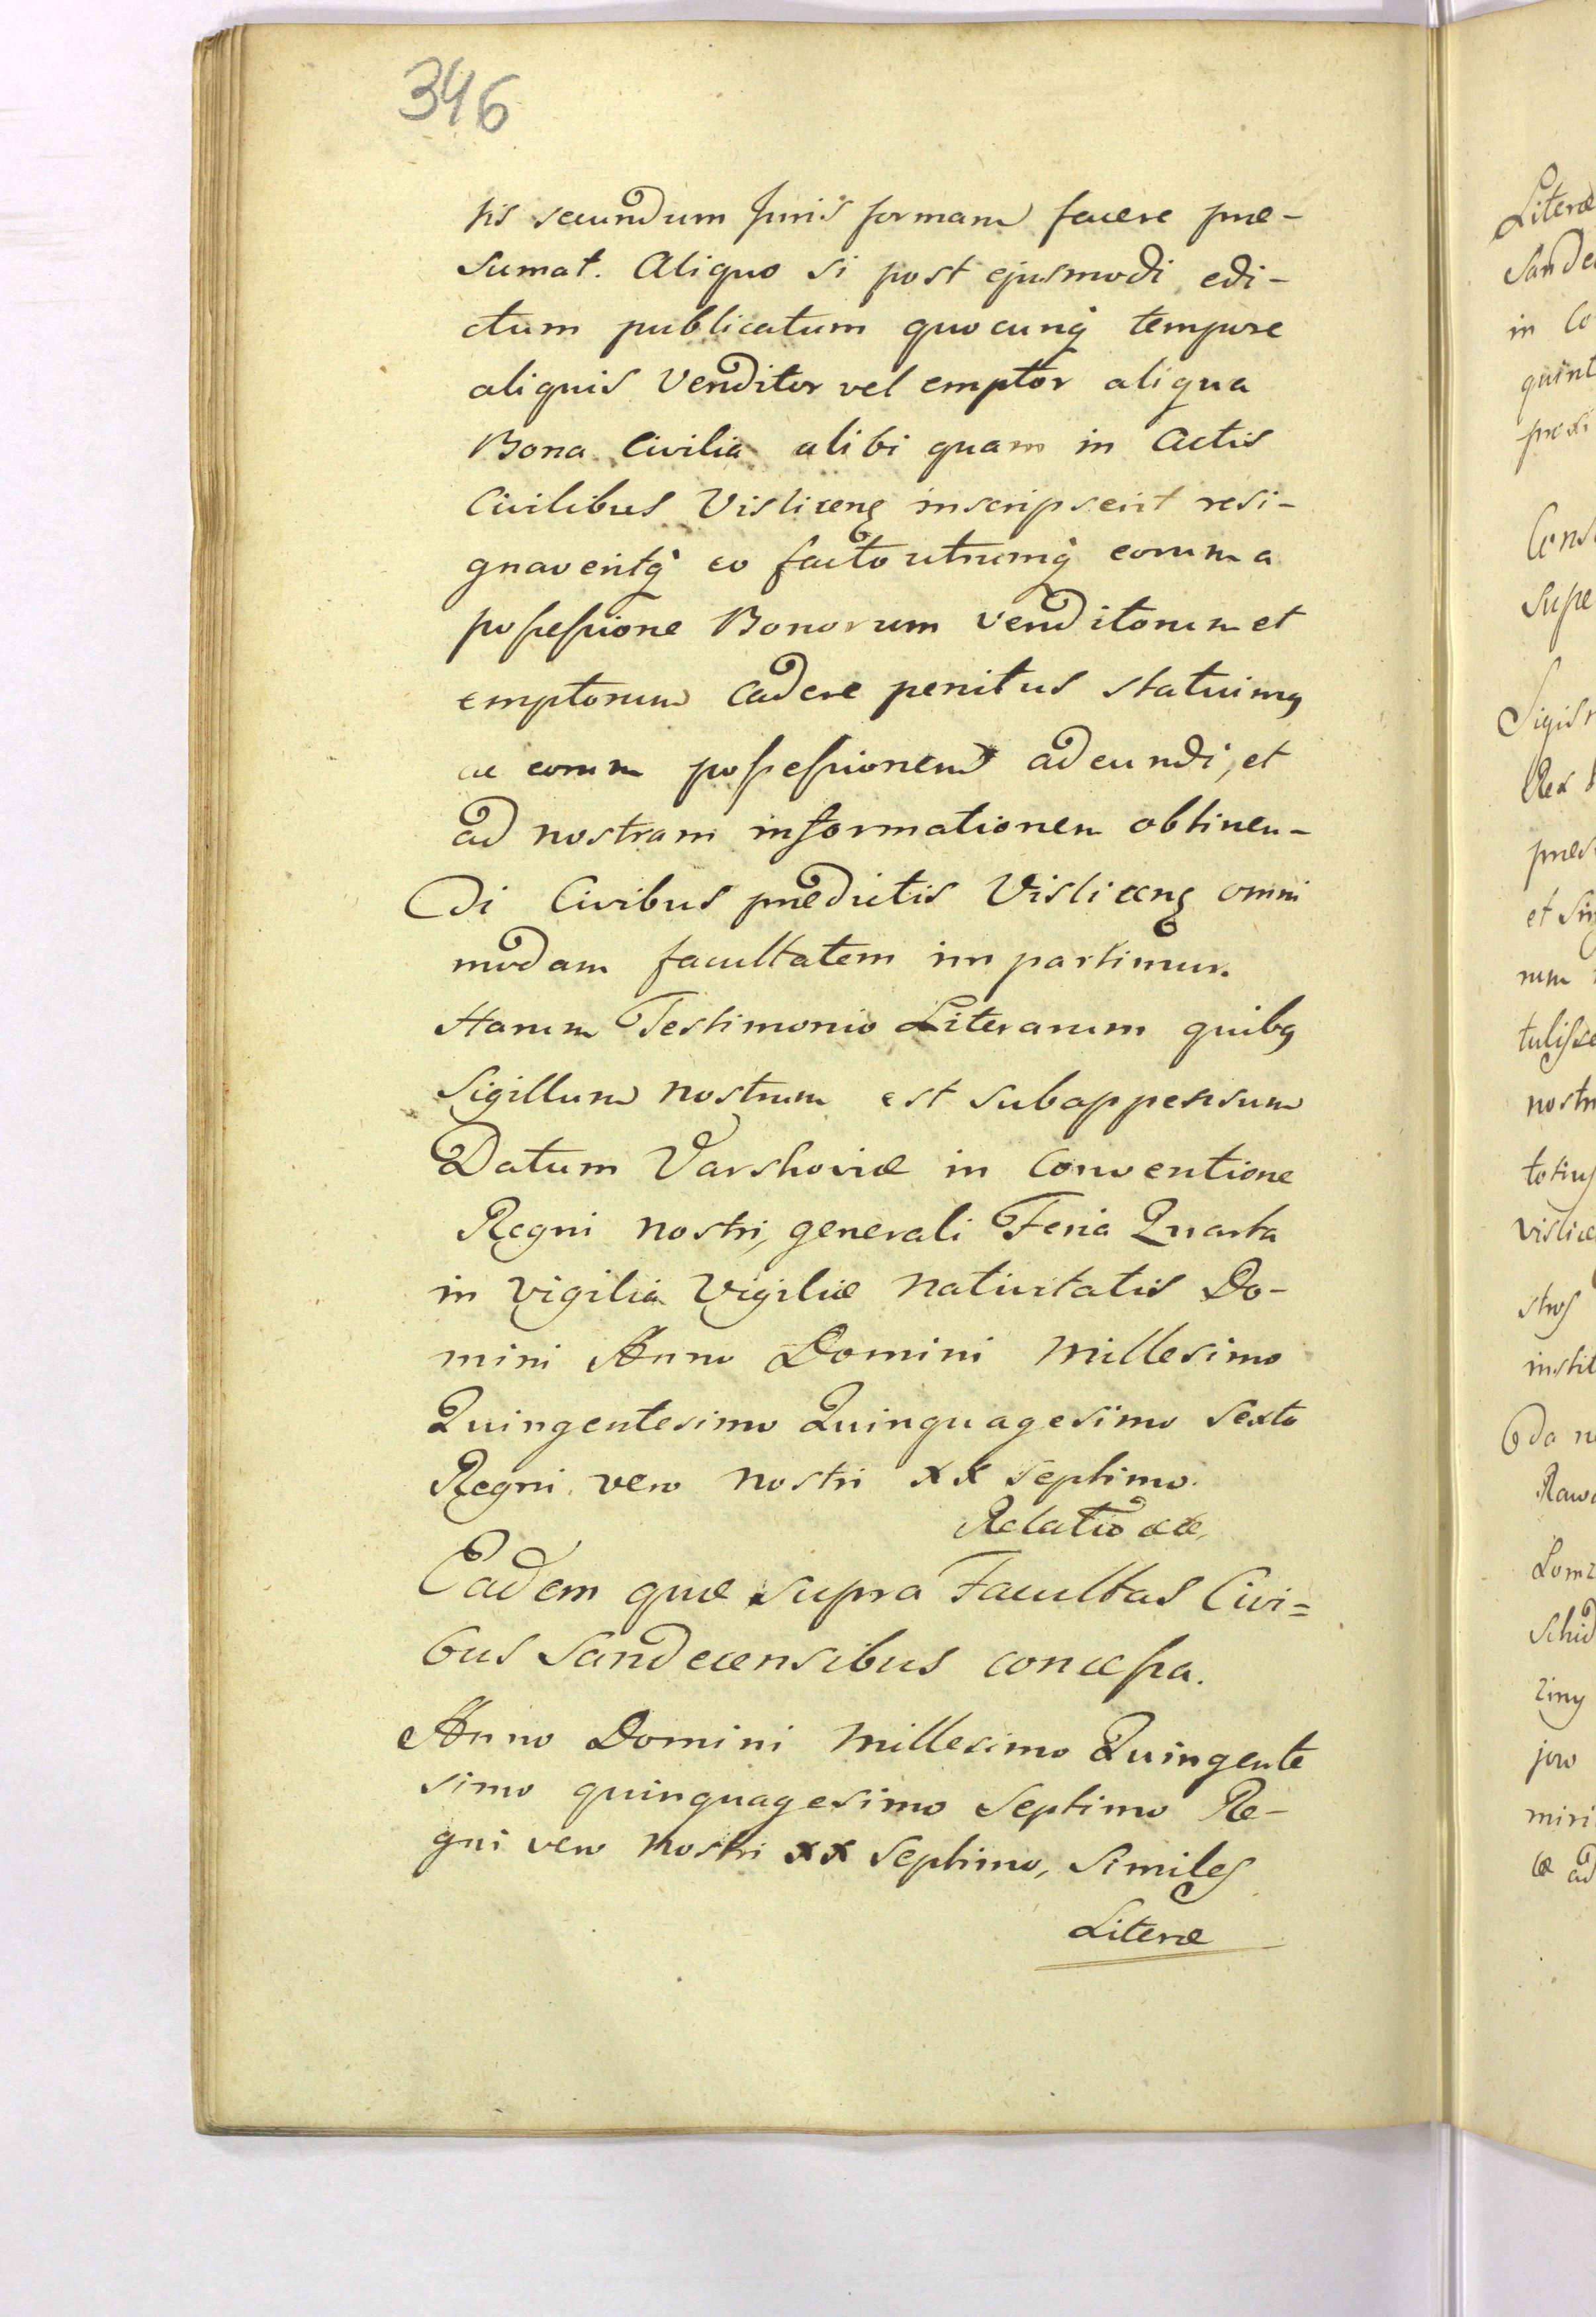 346
sis secundum Juris formam facere præ-
sumat. Aliquo si post ejusmodi edi-
ctum publicatum quocunq tempore
aliquis Venditor vel emptor aliqua
Bona Civilia alibi quam in Actis
Civilibus Vislicens inscripserit resi-
gnaveritq eo facto utrumq eorum a
possessione Bonorum venditorum et
emptorum cadere penitus statuimus
ac eorum possessionem adeundi, et
ad nostram informationem obtinen-
di Civibus prædictis Vislicens omni
modam facultatem impartimur.
Harum Testimonio Literarum quibus
Sigillum nostrum est subappensum
Datum Varshoviæ in Conventione
Regni nostri, generali Feria Quarta
in vigilia Vigiliæ Nativitatis Do-
mini Anno Domini Millesimo
Quingentesimo Quinquagesimo Sexto
Regni vero nostri xx septimo.
Relatio
Eadem quæ supra Facultas Civi=
bus Sandecensibus concessa.
Anno Domini Millesimo Quingente
simo quinquagesimo Septimo Re-
gni vero Nostri xx Septimo, Similes
Literæ
Literæ
Sande
in Co
quint
Cons
Supe
Sigis
Rex
præs
et Sin
num
tulisse
nostr
totius
vislic
stros
instit
da n
Rawa
Lomz
Schid
ziny
joro
miri
æ ad